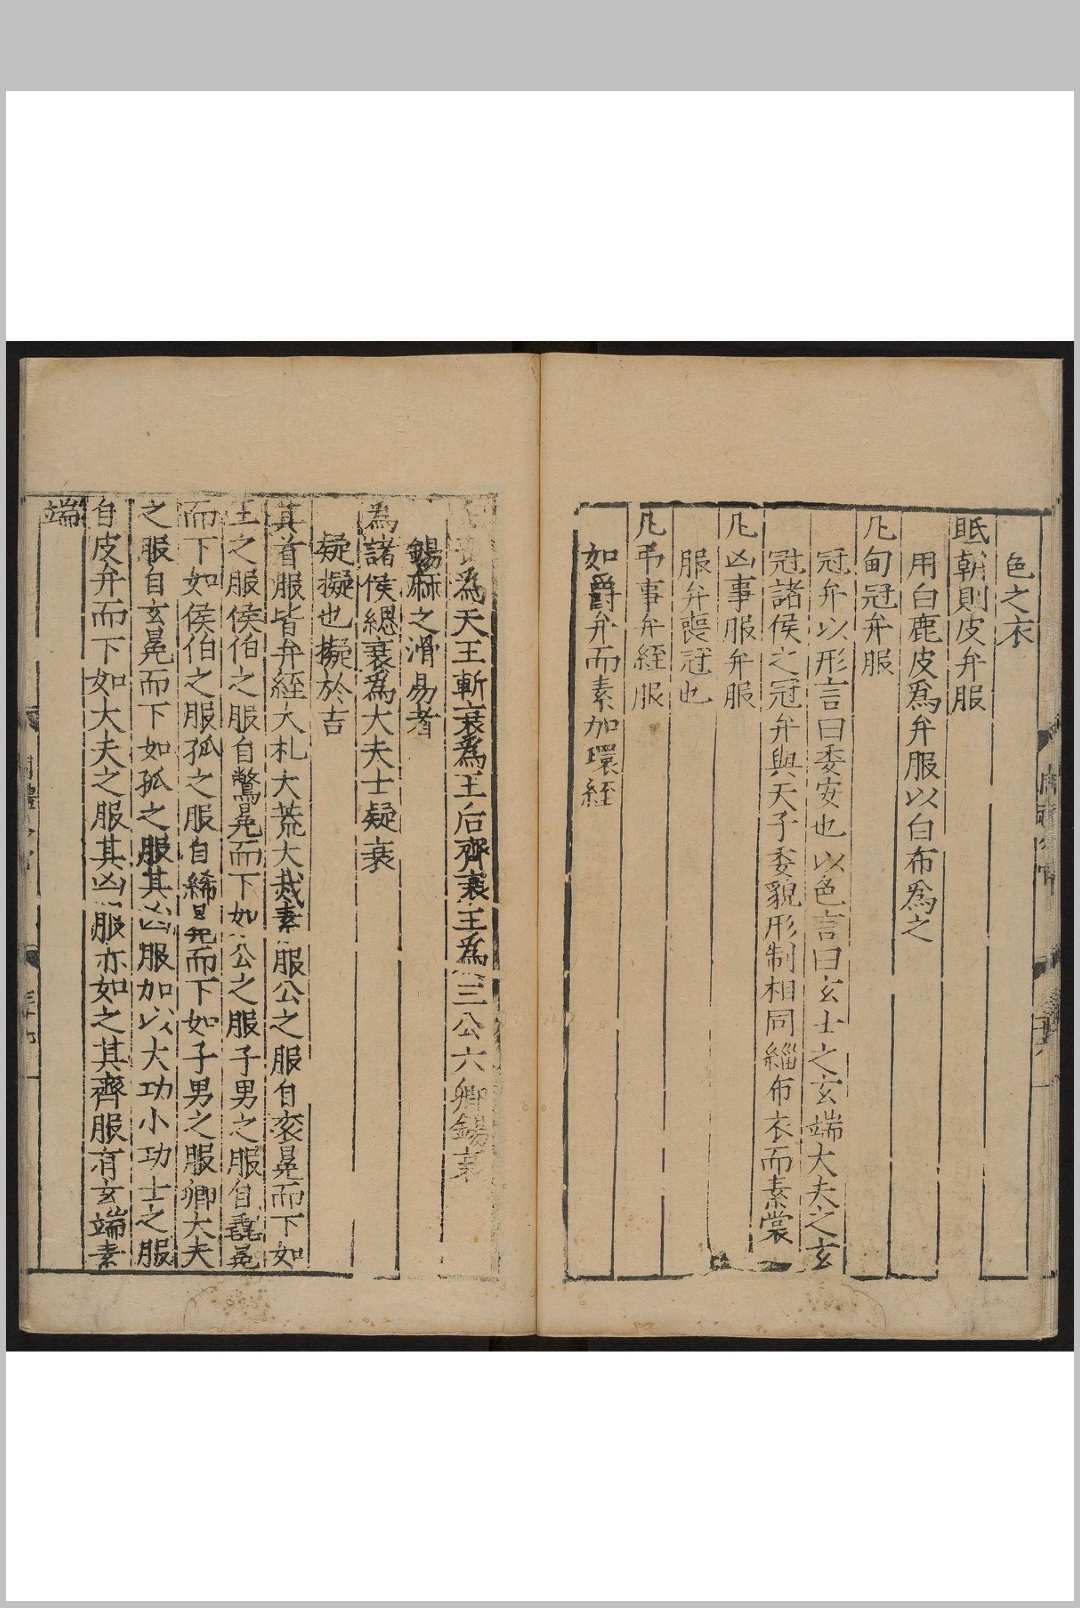 色之衣
眂朝則皮弁服
用白鹿皮爲弁服以白布爲之
凡甸冠弁服
冠弁以形言曰委安也以色言曰玄士之玄端大夫之玄
冠諸侯之冠弁與天子委貌形制相同緇布衣而素裳
凡凶事服弁服
服弁喪冠也
凡弔事弁絰服
如爵弁而素加環絰
喪為天王斬衰爲王后齊衰王爲三公六卿錫衰
錫麻之滑易者
為諸侯緦衰爲大夫士疑衰
疑擬也擬於吉
其首服皆弁絰大札大荒大烖素服公之服自衮冕而下如
王之服侯伯之服自鷩冕而下如公之服子男之服自毳冕
而下如侯伯之服孤之服自絺冕而下如子男之服卿大夫
之服自玄冕而下如孤之服其凶服加以大功小功士之服
自皮弁而下如大夫之服其凶服亦如之其齊服有玄端素
端